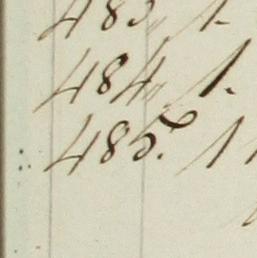 483,, 1.
484,, 1.
485. 1